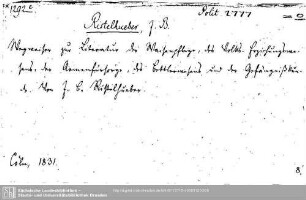 1292 c
Polit 2777
Ristelhueber, J. B.
Wegweiser zur Literatur der Waisenpflege, des Volks-Erziehungswe-
sens, der Armenfürsorge, des Bettlerwesens und der Gefängnißkun-
de. Von J. B. Ristelhueber.
Cöln, 1831.
8.
Sächsische Landesbibliothek -
Staats- und Universitätsbibliothek Dresden